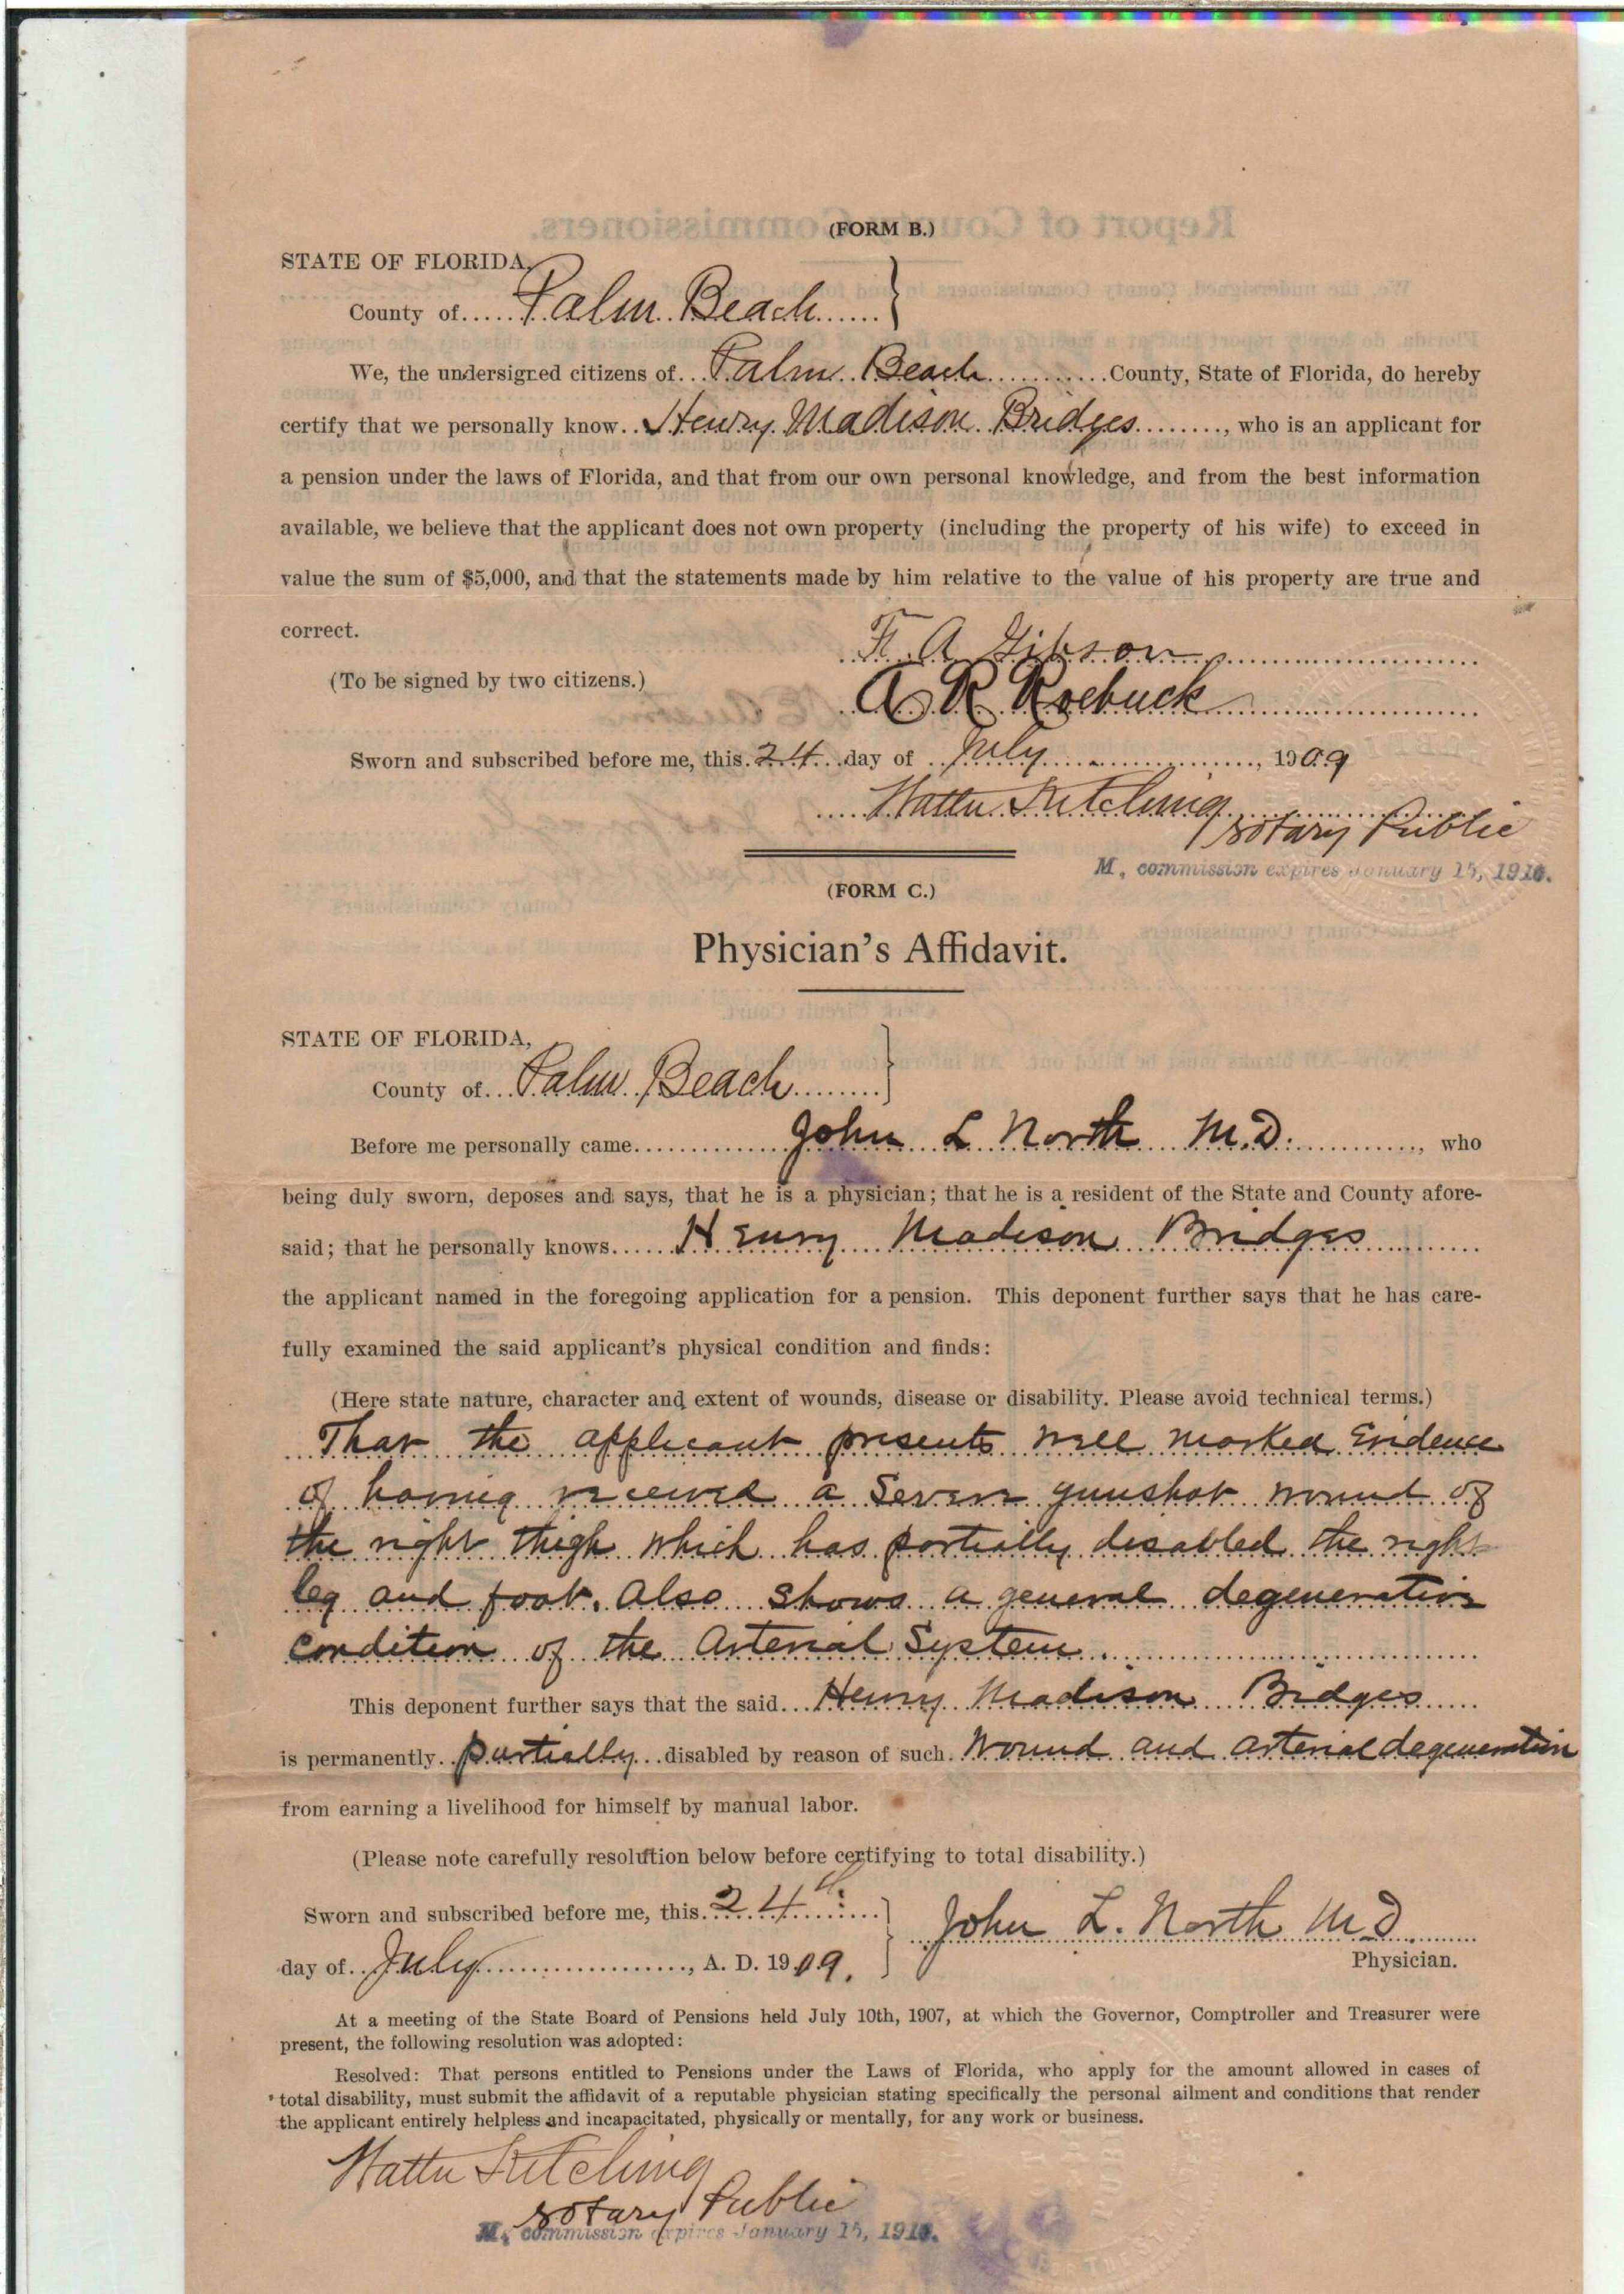 (FORM B.)
STATE OF FLORIDA,
County of Palm Beach }
We, the undersigned citizens of Palm Beach County, State of Florida, do hereby
certify that we personally know Henry Madison Bridges, who is an applicant for
a pension under the laws of Florida, and that from our own personal knowledge, and from the best information
available, we believe that the applicant does not own property (including the property of his wife) to exceed in
value the sum of $5,000, and that the statements made by him relative to the value of his property are true and
correct.
F. A Gibson
(To be signed by two citizens.)
A R Roebuck
Sworn and subscribed before me, this 24 day of July, 1909
Kitching
Notary Public
commission expires January 15, 1910.
(FORM C.)
Physician's Affidavit.
STATE OF FLORIDA,
County of Palm Beach }
Before me personally came John L North M.D., who
being duly sworn, deposes and says, that he is a physician; that he is a resident of the State and County afore-
said; that he personally knows Henry Madison Bridges
the applicant named in the foregoing application for a pension. This deponent further says that he has care-
fully examined the said applicant's physical condition and finds:
(Here state nature, character and extent of wounds, disease or disability. Please avoid technical terms.)
That the applicant presents well marked Evidence
of having received a Severe gunshot wound of
the right thigh which has partially disabled the right
leg and foot. Also shows a general degenerative
condition of the Arterial System.
This deponent further says that the said Henry Madison Bridges
is permanently partially disabled by reason of such Wound and arterial degeneration
from earning a livelihood for himself by manual labor.
(Please note carefully resolution below before certifying to total disability.)
Sworn and subscribed before me, this 24th
John L. North M D
day of July, A. D. 1909.
Physician.
At a meeting of the State Board of Pensions held July 10th, 1907, at which the Governor, Comptroller and Treasurer were
present, the following resolution was adopted:
Resolved: That persons entitled to Pensions under the Laws of Florida, who apply for the amount allowed in cases of
total disability, must submit the affidavit of a reputable physician stating specifically the personal ailment and conditions that render
the applicant entirely helpless and incapacitated, physically or mentally, for any work or business.
Kitching
Notary Public
commission expires January 15, 1910.